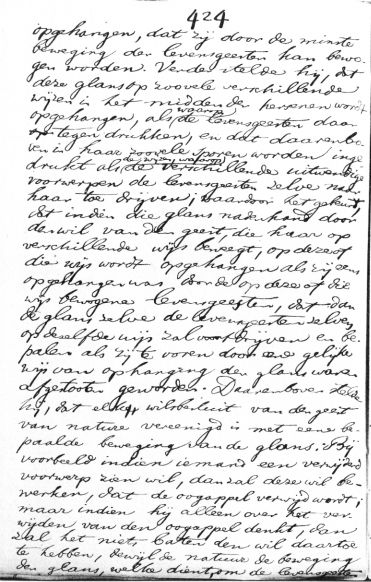 424
opgehangen, dat zij door de minste
beweging der levensgeesten kan bewo-
gen worden. Verder stelde hij, dat
deze glans op zoovele verschillende
wijzen in het midden der hersenen wordt
waarop
opgehangen, als de levensgeesten daar
tegen drukken, en dat daarenbo-
ven in haar zoovele sporen worden inge-
de wijzen waarop
drukt als de verschillende uitwendige
voorwerpen de levensgeesten zelve naar
haar toe drijven; waardoor het gebeurt,
dat indien die glans naderhand door
den wil van den geest, die haar op
verschillende wijs beweegt, op deze of
die wijs wordt opgehangen als zij eens
opgehangen was door de op deze of die
wijs bewogene levensgeesten, dat dan
de glans zelve de levensgeesten zelve
op dezelfde wijs zal voortdrijven en be-
palen als zij te voren door een gelijke
wijs van ophanging der glans waren
afgestooten geworden. Daarenboven stelde
hij, dat elk wilsbesluit van den geest
van nature vereenigd is met eene be-
paalde beweging van de glans. Bij
voorbeeld indien iemand een verwijderd
voorwerp zien wil, dan zal deze wil be-
werken, dat de oogappel verwijd wordt;
maar indien hij alleen over het ver-
wijden van den oogappel denkt, dan
zal het niets baten den wil daartoe
te hebben, dewijl de natuur de beweging
der glans, welke dient om de levensgeesten